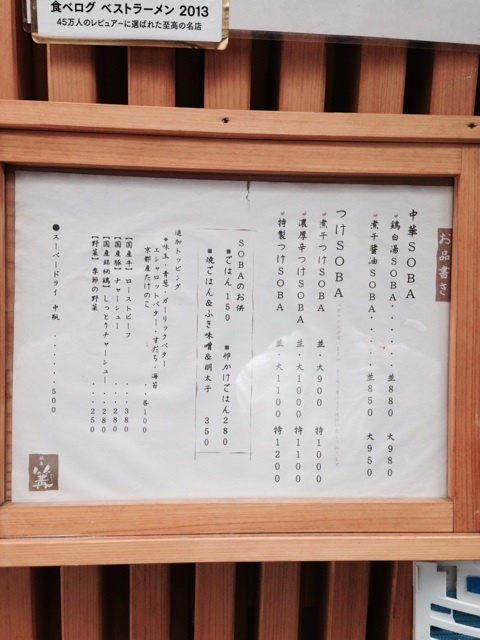 食べログ ベストラーメン 2013
45万人のレビュアーに選ばれた至高の名店
お品書き
中華SOBA
鶏白湯SOBA・・・・・並880 大980
煮干醤油SOBA・・・・・並850 大950
つけSOBA
煮干つけSOBA 並・大900 特1000
濃厚辛つけSOBA 並・大1000 特1100
特製つけSOBA 並・大1100 特1200
SOBAのお供
■ごはん 150 ■卵かけごはん280
■焼ごはん&ふき味噌&明太子 350
追加トッピング
味玉・青葱・ガーリックバター
エシャロットバター・すだち・海苔
京都産たけのこ ・・各100
【国産牛】ローストビーフ ・・・380
【国産豚】チャーシュー ・・・280
【国産銘柄鶏】しっとりチャーシュー ・・280
【野菜】季節の野菜 ・・・250
●スーパードライ 中瓶 ・・・・・・500